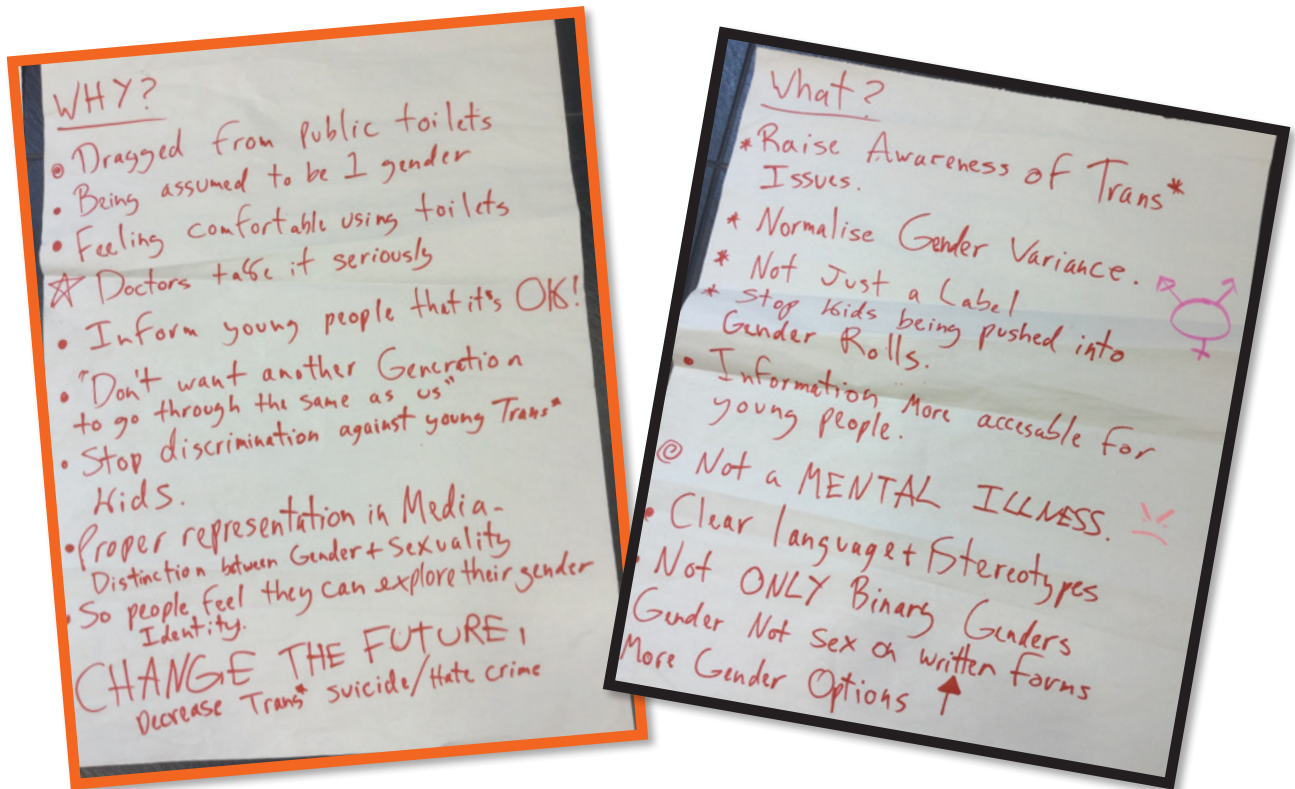 WHY?
Dragged from public toilets
• Being assumed to be 1 gender
• Feeling comfortable using toilets
☆ Doctors take it seriously
• Inform young people that it's OK!
• "Don't want another Generation
to go through the same as us"
• Stop discrimination against young Trans*
Kids.
• Proper representation in Media-
Distinction between Gender + Sexuality
• So people feel they can explore their gender
Identity.
CHANGE THE FUTURE,
Decrease Trans* suicide/Hate crime
What?
* Raise Awareness of Trans*
Issues.
* Normalise Gender Variance.
* Not Just a Label
* Stop Kids being pushed into
Gender Rolls.
• Information More accesable for
young people.
Not a MENTAL ILLNESS.
• Clear language + Stereotypes
• Not ONLY Binary Genders
Gender Not Sex on written forms
More Gender Options ↑